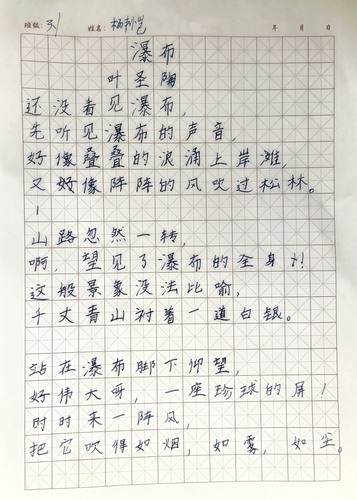 班级：3.1 姓名：杨 年 月 日
瀑布
叶圣陶
还没看见瀑布，
先听见瀑布的声音，
好像叠叠的浪涌上岸滩，
又好像阵阵的风吹过松林。
山路忽然一转，
啊，望见了瀑布的全身！
这般景象没法比喻，
千丈青山衬着一道白银。
站在瀑布脚下仰望，
好伟大哥，一座珍珠的屏！
时时来一阵风，
把它吹得如烟，如雾，如尘。